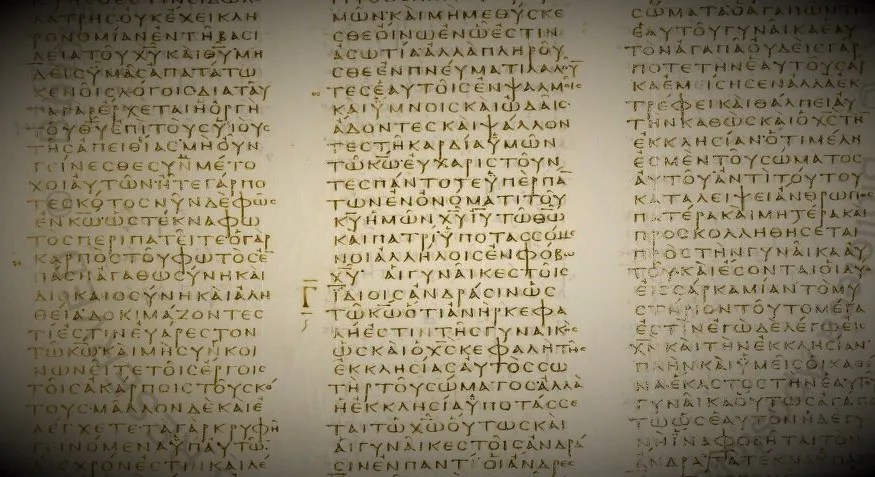 ΛΑΤΡΗΣΟΥΚΕΧΕΙΚΛΗ
ΡΟΝΟΜΙΑΝΕΝΤΗΒΑΣΙ
ΛΕΙΑΤΟΥΧΥΚΑΙΘΥΜΗ
ΔΕΙΣΥΜΑΣΑΠΑΤΑΤΩ
ΚΕΝΟΙΣΛΟΓΟΙΣΔΙΑΤΑΥ
ΤΑΓΑΡΕΡΧΕΤΑΙΗΟΡΓΗ
ΤΟΥΘΥΕΠΙΤΟΥΣΥΙΟΥΣ
ΤΗΣΑΠΕΙΘΙΑΣΜΗΟΥΝ
ΓΕΙΝΕΣΘΕΣΥΝΜΕΤΟ
ΧΟΙΑΥΤΩΝΗΤΕΓΑΡΠΟ
ΤΕΣΚΟΤΟΣΝΥΝΔΕΦΩΣ
ΕΝΚΩΩΣΤΕΚΝΑΦΩ
ΤΟΣΠΕΡΙΠΑΤΕΙΤΕΟΓΑΡ
ΚΑΡΠΟΣΤΟΥΦΩΤΟΣΕ
ΠΑΣΗΑΓΑΘΩΣΥΝΗΚΑΙ
ΔΙΚΑΙΟΣΥΝΗΚΑΙΑΛΗ
ΘΕΙΑΔΟΚΙΜΑΖΟΝΤΕΣ
ΤΙΕΣΤΙΝΕΥΑΡΕΣΤΟΝ
ΤΩΚΩΚΑΙΜΗΣΥΝΚΟΙ
ΝΩΝΕΙΤΕΤΟΙΣΕΡΓΟΙΣ
ΤΟΙΣΑΚΑΡΠΟΙΣΤΟΥΣΚΟ
ΤΟΥΣ·ΜΑΛΛΟΝΔΕΚΑΙΕ
ΛΕΓΧΕΤΕΤΑΓΑΡΚΡΥΦΗ
ΓΕΙΝΟΜΕΝΑΥΠΑΥΤΩ
ΑΙΣΧΡΟΝΕΣΤΙΝΚΑΙΛΕ
ΜΩΝ·ΚΑΙΜΗΜΕΘΥΣΚΕ
ΣΘΕΟΙΝΩΕΝΩΕΣΤΙΝ
ΑΣΩΤΙΑΑΛΛΑΠΛΗΡΟΥ
ΣΘΕΕΝΠΝΕΥΜΑΤΙΛΑΛΟΥ
ΤΕΣΕΑΥΤΟΙΣΕΝΨΑΛΜΟΙΣ
ΚΑΙΥΜΝΟΙΣΚΑΙΩΔΑΙΣ
ΑΔΟΝΤΕΣΚΑΙΨΑΛΛΟΝ
ΤΕΣΤΗΚΑΡΔΙΑΥΜΩΝ
ΤΩΚΩ·ΕΥΧΑΡΙΣΤΟΥΝ
ΤΕΣΠΑΝΤΟΤΕΥΠΕΡΠΑ
ΤΩΝΕΝΟΝΟΜΑΤΙΤΟΥ
ΚΥΗΜΩΝΧΥΙΥΤΩΘΩ
ΚΑΙΠΑΤΡΙ·ΥΠΟΤΑΣΣΟΜΕ
ΝΟΙΑΛΛΗΛΟΙΣΕΝΦΟΒΩ
ΧΥ· ΑΙΓΥΝΑΙΚΕΣΤΟΙΣ
Γ ΙΔΙΟΙΣΑΝΔΡΑΣΙΝΩΣ
ΤΩΚΩΟΤΙΑΝΗΡΚΕΦΑ
ΛΗΕΣΤΙΝΤΗΣΓΥΝΑΙΚΟΣ
ΩΣΚΑΙΟΧΣΚΕΦΑΛΗΤΗΣ
ΕΚΚΛΗΣΙΑΣΑΥΤΟΣΣΩ
ΤΗΡΤΟΥΣΩΜΑΤΟΣΑΛΛΑ
ΗΕΚΚΛΗΣΙΑΥΠΟΤΑΣΣΕ
ΤΑΙΤΩΧΩΟΥΤΩΣΚΑΙ
ΑΙΓΥΝΑΙΚΕΣΤΟΙΣΑΝΔΡΑ
ΣΙΝΕΝΠΑΝΤΙ·ΟΙΑΝΔΡΕΣ
ΣΩΜΑΤΑΟΑΓΑΠΩΝΤΗΝ
ΕΑΥΤΟΥΓΥΝΑΙΚΑΕΑΥ
ΤΟΝΑΓΑΠΑΟΥΔΕΙΣΓΑΡ
ΠΟΤΕΤΗΝΕΑΥΤΟΥΣΑΡ
ΚΑΕΜΕΙΣΗΣΕΝΑΛΛΑΕΚ
ΤΡΕΦΕΙΚΑΙΘΑΛΠΕΙΑΥ
ΤΗΝΚΑΘΩΣΚΑΙΟΧΣΤΗΝ
ΕΚΚΛΗΣΙΑΝ·ΟΤΙΜΕΛΗ
ΕΣΜΕΝΤΟΥΣΩΜΑΤΟΣ
ΑΥΤΟΥΑΝΤΙΤΟΥΤΟΥ
ΚΑΤΑΛΕΙΨΕΙΑΝΘΡΩΠΟΣ
ΠΑΤΕΡΑΚΑΙΜΗΤΕΡΑΚΑΙ
ΠΡΟΣΚΟΛΛΗΘΗΣΕΤΑΙ
ΠΡΟΣΤΗΝΓΥΝΑΙΚΑΑΥ
ΤΟΥ·ΚΑΙΕΣΟΝΤΑΙΟΙΔΥΟ
ΕΙΣΣΑΡΚΑΜΙΑΝΤΟΜΥ
ΣΤΗΡΙΟΝΤΟΥΤΟΜΕΓΑ
ΕΣΤΙΝΕΓΩΔΕΛΕΓΩΕΙΣ
ΧΝΚΑΙΤΗΝΕΚΚΛΗΣΙΑΝ·
ΠΛΗΝΚΑΙΥΜΕΙΣΟΙΚΑΘΕ
ΝΑ·ΕΚΑΣΤΟΣΤΗΝΕΑΥΤΟΥ
ΓΥΝΑΙΚΑΟΥΤΩΣΑΓΑΠΑ
ΤΩΩΣΕΑΥΤΟΝΗΔΕΓΥ
ΝΗΙΝΑΦΟΒΗΤΑΙΤΟΝ
ΑΝΔΡΑΤΑΤΕΚΝΑΥΠΑ